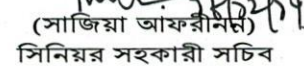 (সাজিয়া আফরীন)
সিনিয়র সহকারী সচিব